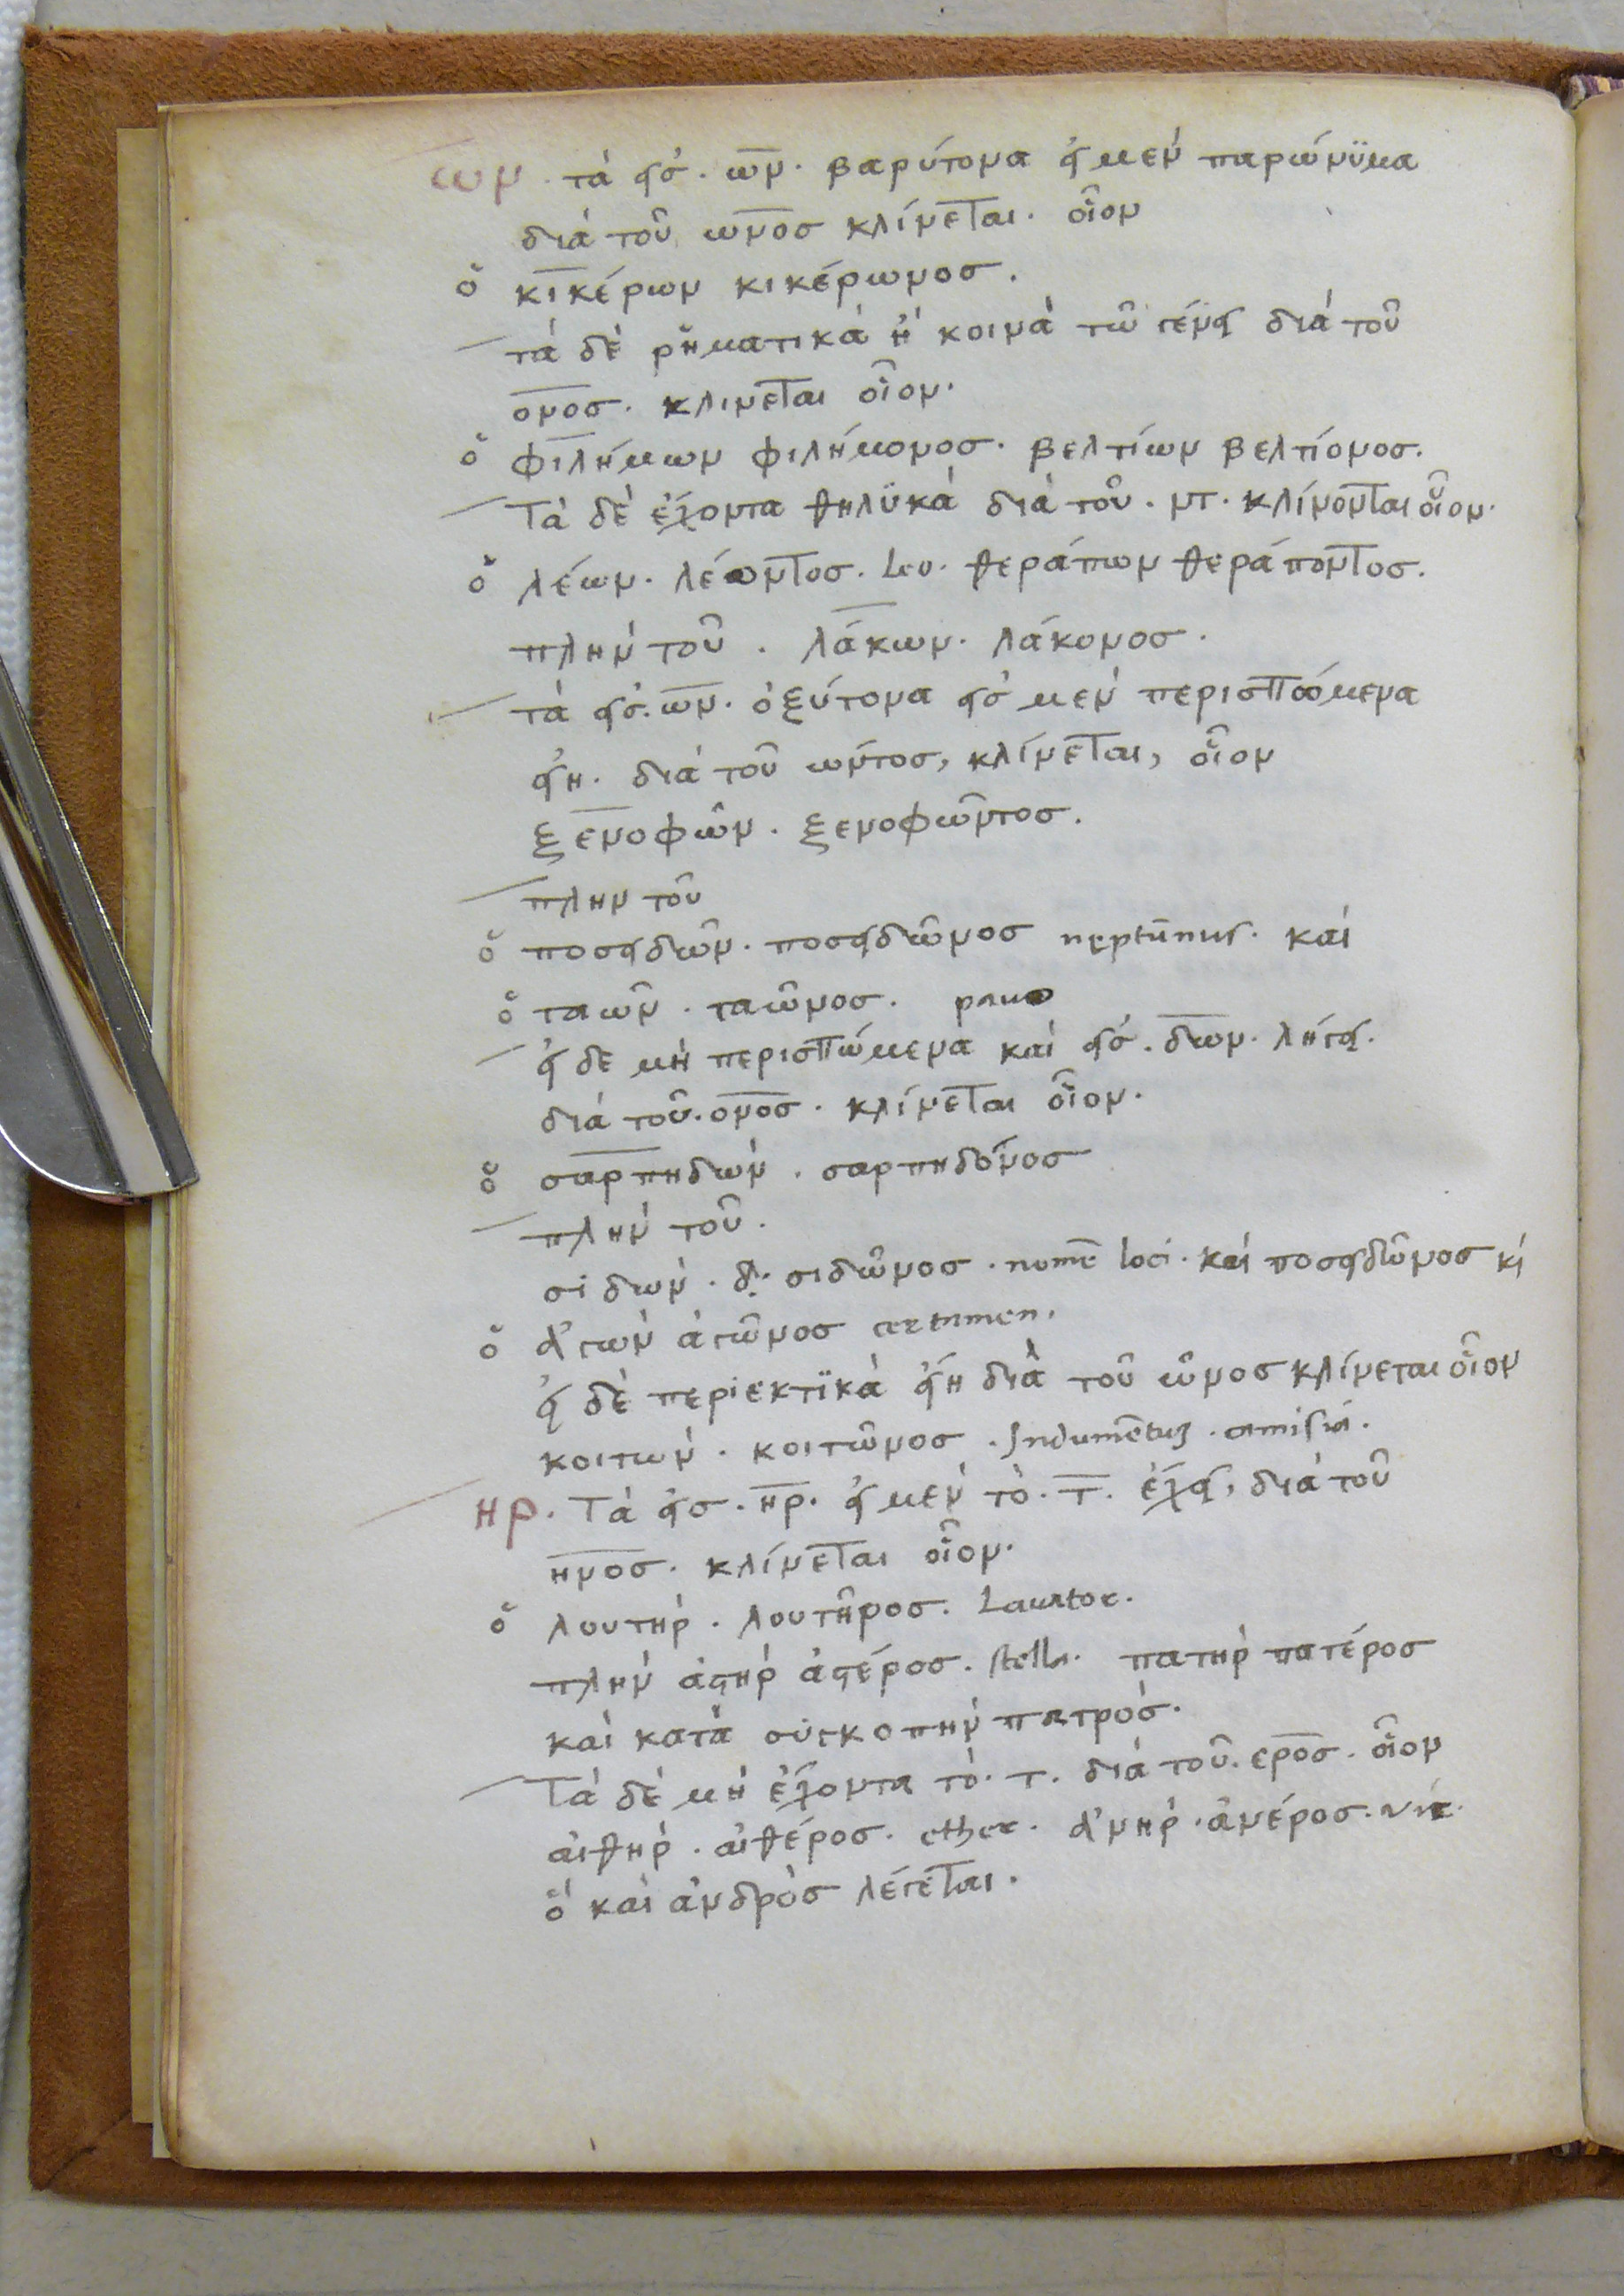 ων. τὰ εἰσ. ων. βαρύτονα εἰ μὲν παρώνϋμα
διὰ τοῦ ωνοσ κλίνεται. οἷον
ὁ κικέρων κικέρωνοσ.
τὰ δὲ ρἡματικὰ ἢ κοινὰ τῶ γένει διὰ τοῦ
ονοσ. κλινεται οἷον.
ὁ φιλήμων φιλήμονοσ. βελτίων βελτίονοσ.
Τὰ δὲ ἔχοντα θηλϋκὰ διὰ τοῦ. ντ. κλίνονται οἷον.
ὁ λέων. λέοντοσ. Leo. θεράπων θεράποντοσ.
πλὴν τοῦ. λάκων. λάκονοσ.
τὰ εἰσ. ων. ὀξύτονα εἰσ μὲν περισπώμενα
εἴη. διὰ τοῦ ωντοσ, κλίνεται, οἷον
ξενοφῶν. ξενοφῶντοσ.
πλην τοῦ
ὁ ποσειδῶν. ποσειδῶνοσ neptūnus. καὶ
ὁ ταῶν. ταῶνοσ. pauo
εἰ δε μὴ περισπώμενα καὶ εἰσ. δων. λήγει.
διὰ τοῦ. ονοσ. κλίνεται οἷον.
ὁ σαρπηδὼν. σαρπηδόνοσ
πλὴν τοῦ.
σιδὼν. σιδῶνοσ. nomē loci. καὶ ποσειδῶνοσ κὶ
ὁ ἀγὼν ἀγῶνοσ certamen.
εἰ δὲ περιεκτϊκὰ εἴη διὰ τοῦ ῶνοσ κλίνεται οἷον
κοιτὼν. κοιτῶνοσ. Indumētuʒ. camisia.
ηρ. Τὰ εἰσ. ηρ. εἰ μὲν τὸ. τ. ἔχει, διὰ τοῦ
ηνοσ. κλίνεται οἷον.
ὁ λουτὴρ. λουτῆροσ. Lauator.
πλὴν ἀϛὴρ ἀϛέροσ. stella. πατὴρ πατέροσ
καὶ κατὰ σύγκοπὴν πατρὸσ.
Τὰ δὲ μὴ ἔχοντα τὸ. τ. διὰ τοῦ. εροσ. οἷον
αἰθὴρ. αἰθέροσ. ether. ἀνὴρ. ἀνέροσ. vir.
ὃ καὶ ἀνδρὸσ λέγεται.